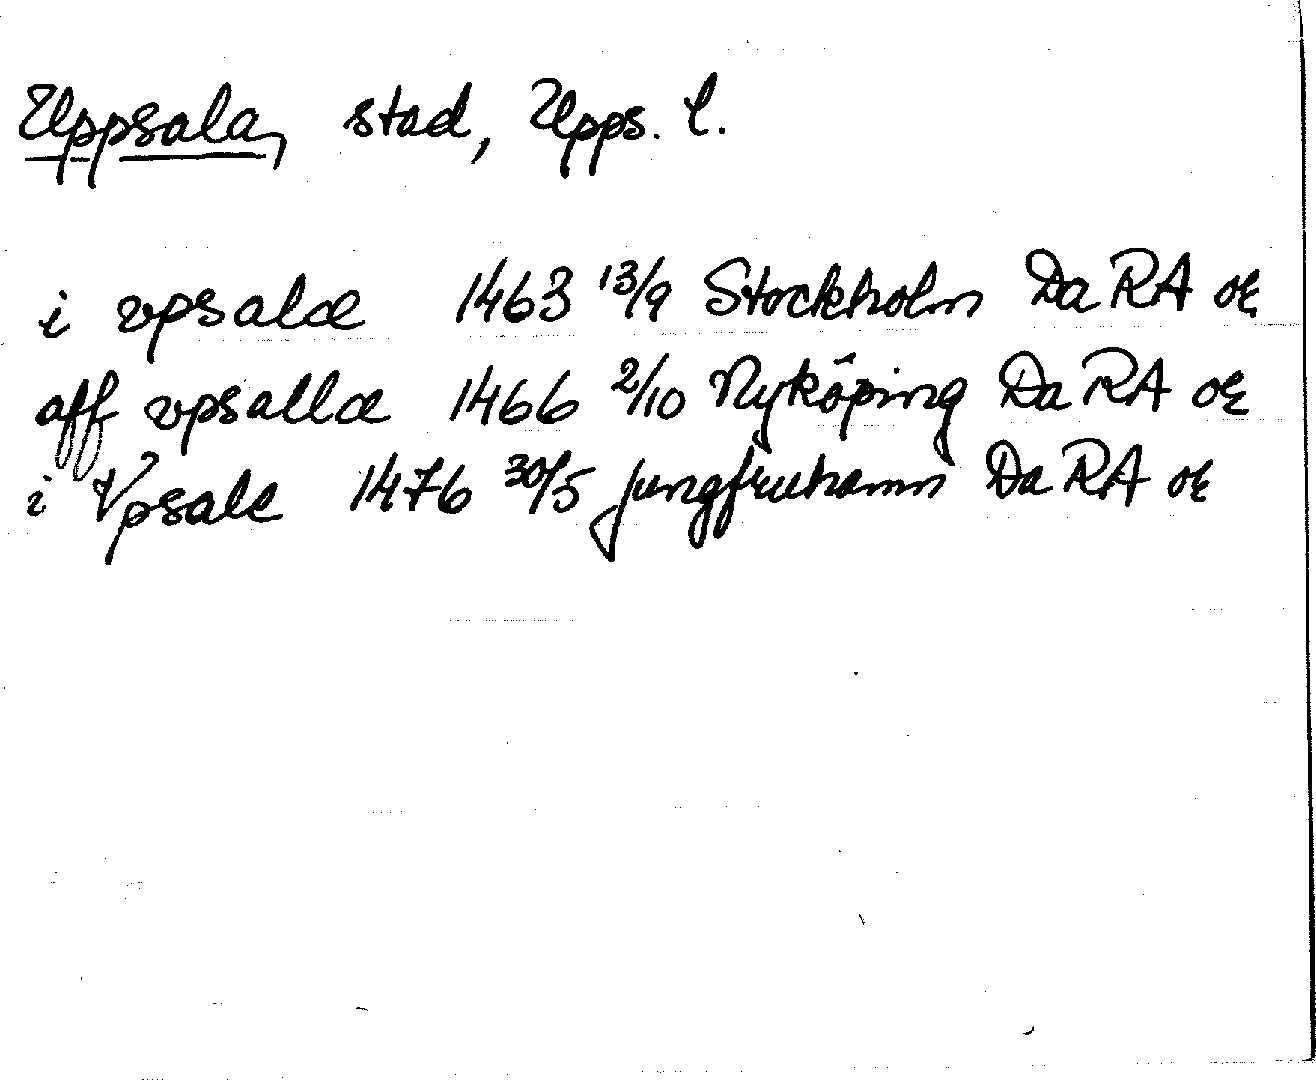 Uppsala, stad, Upps. l.
i vpsalæ 1463 13/9 Stockholm Da RA or
aff vpsallæ 1466 2/10 Nyköping Da RA or
i Vpsale 1476 30/5 Jungfruhamn Da RA or